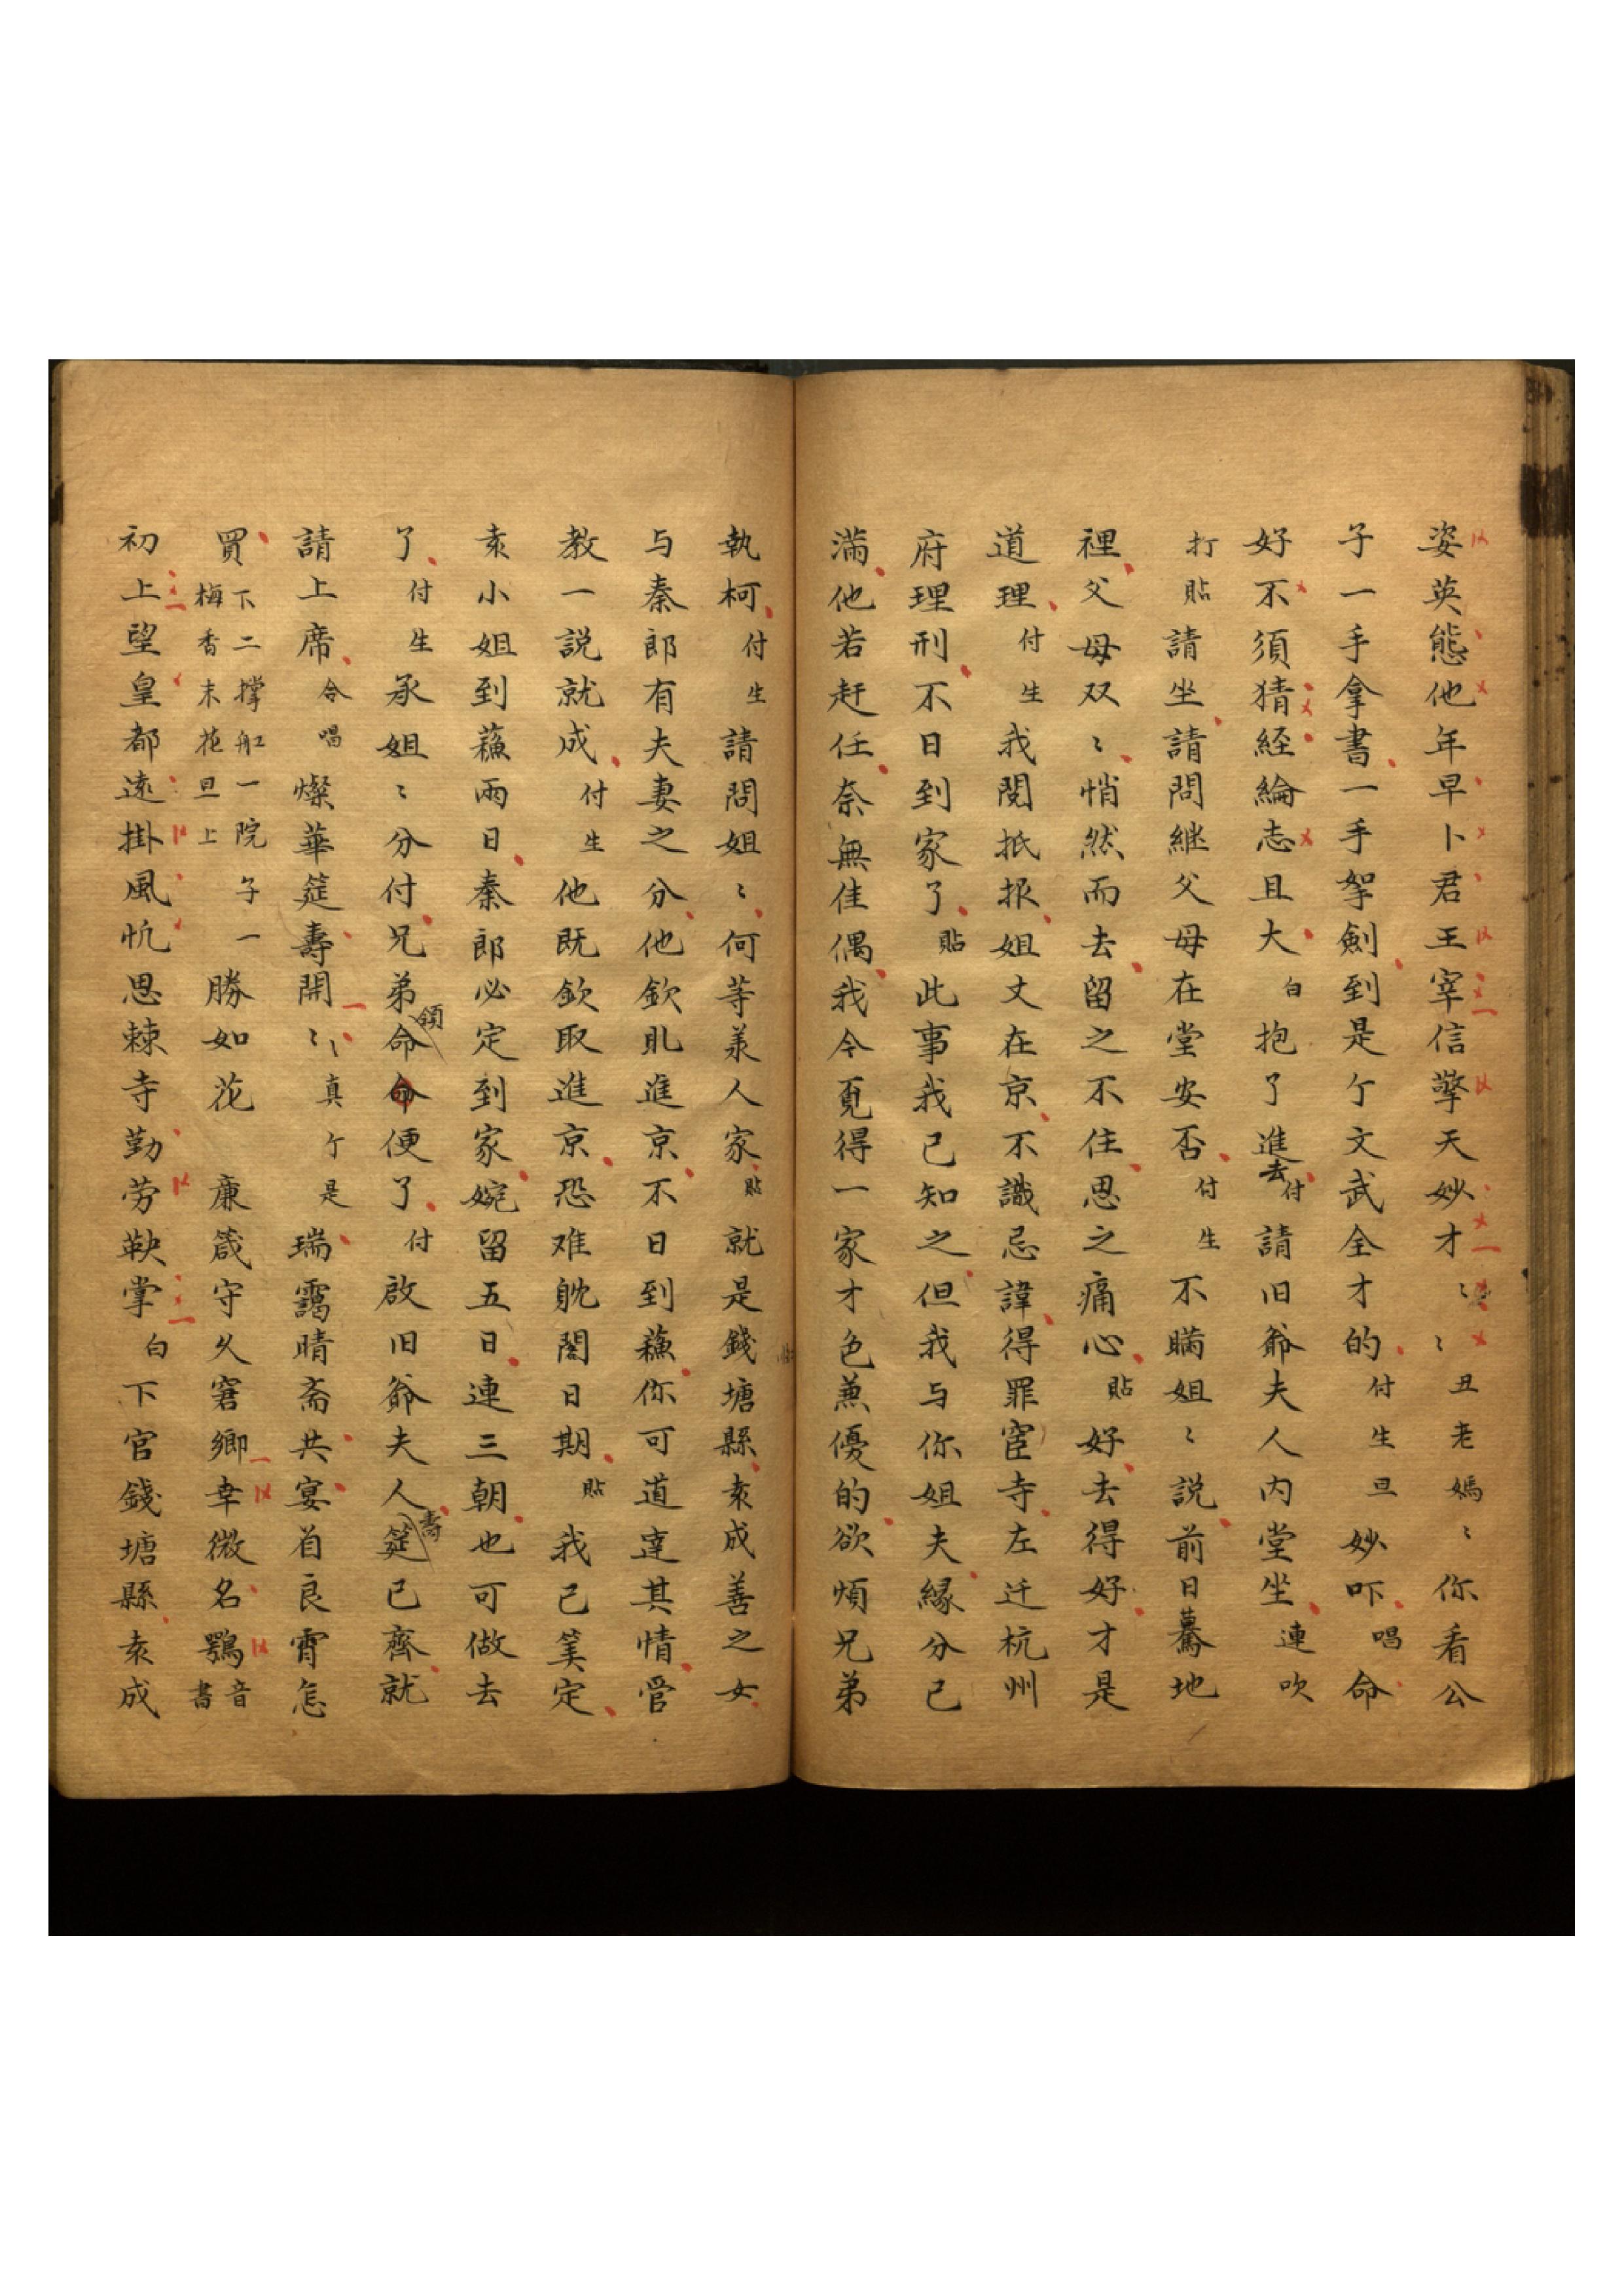 姿英態他年早卜君王宰信擎天妙才〻〻丑老媽〻你看公
子一手拿書一手挐劍到是个文武全才的付生旦妙吓唱命
好不須猜経綸志且大白抱了進去付請旧爺夫人内堂坐連吹
打貼請坐請問継父母在堂安否付生不瞞姐〻説前日驀地
裡父母双〻悄然而去留之不住思之痛心貼好去得好才是
道理付生我閱抵报姐丈在京不識忌諱得罪宦寺左迁杭州
府理刑不日到家了貼此事我已知之但我与你姐夫縁分已
滿他若赶任奈無佳偶我令覔得一家才色兼優的欲煩兄弟
執柯付生請問姐〻何等美人家貼就是錢塘縣袁成善之女
与秦郎有夫妻之分他欽取進京不日到蘓你可道達其情管
教一説就成付生他既欽取進京恐难躭閣日期貼我已筭定
袁小姐到蘓両日秦郎必定到家婉留五日連三朝也可做去
了付生承姐〻分付兄弟領命便了付啟旧爺夫人壽筵已齊就
請上席合唱燦華筵壽開〻真个是瑞靄晴斋共宴首良宵怎
買下二撑船一院子一梅香末花旦上勝如花 廉箴守久窘鄉幸微名鶚音書
初上望皇都遠掛風帆思棘寺勤劳鞅掌白下官錢塘縣袁成